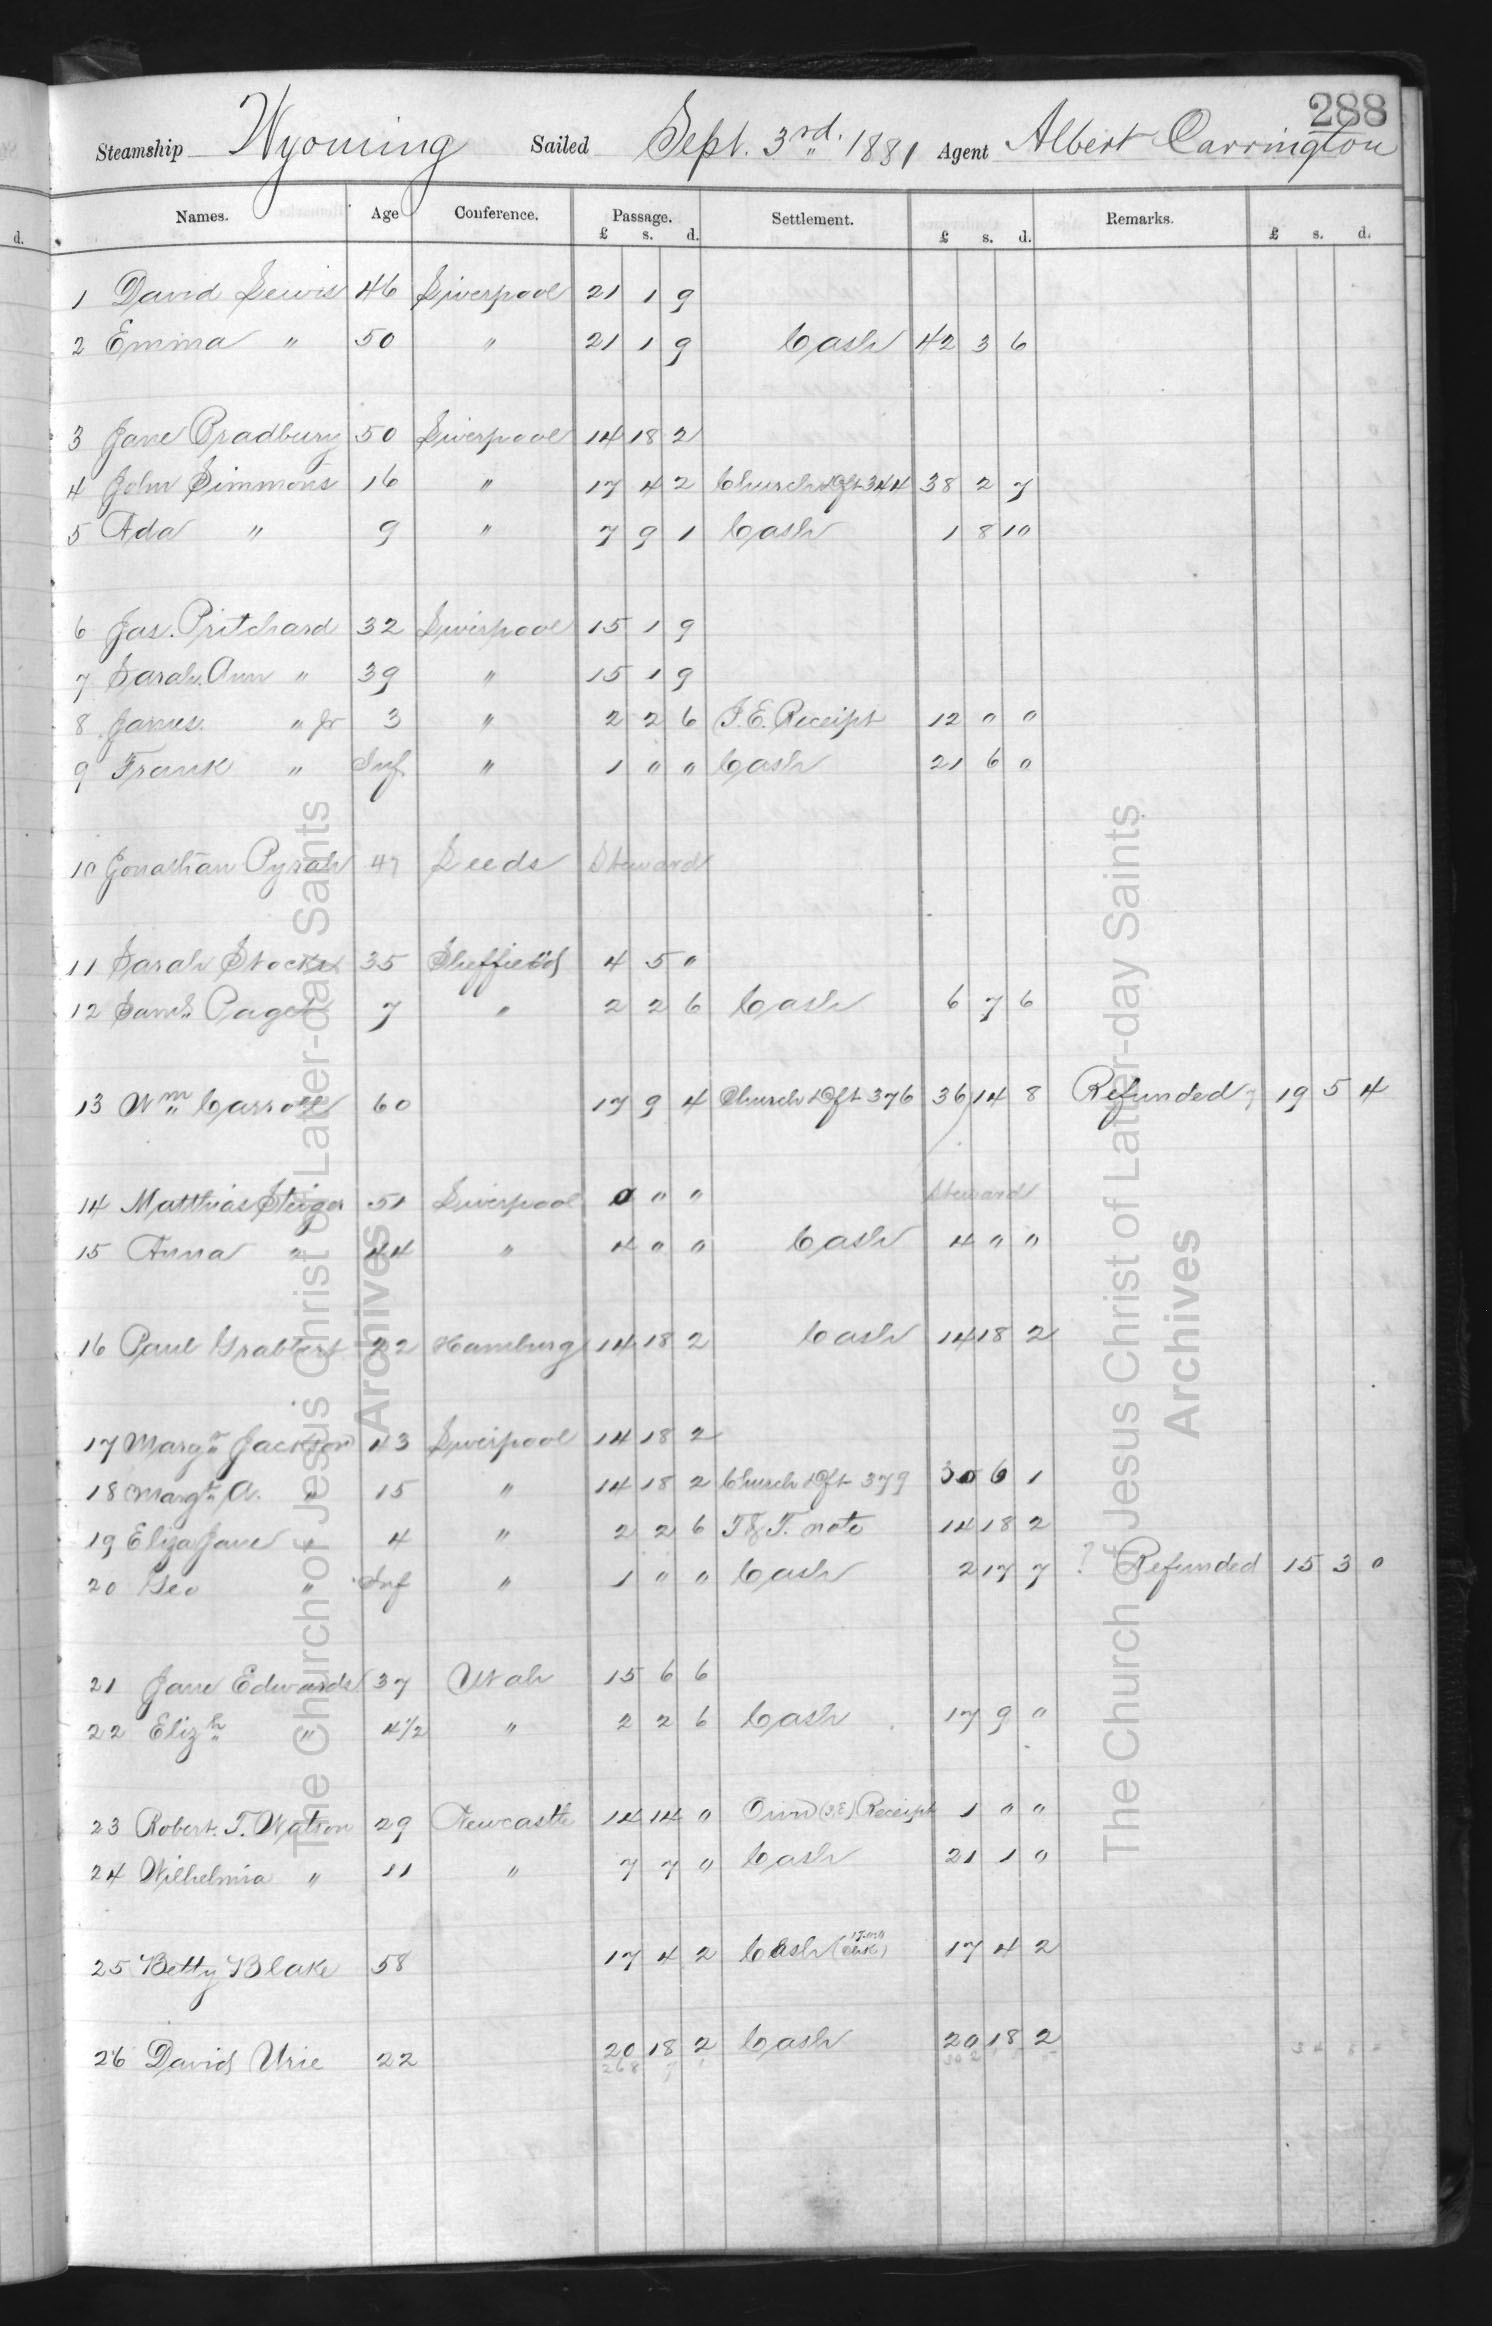 288
Steamship Wyoming Sailed Sept. 3rd. 1881 Agent Albert Carrington
Names. Age Conference. Passage. Settlement. Remarks.
£ s. d. £ s. d. £ s. d.
1 David Lewis 46 Liverpool 21 1 9
2 Emma " 50 " 21 1 9 Cash 42 3 6
3 Jane Bradbury 50 Liverpool 14 18 2
4 John Simmons 16 " 17 4 2 Church Dft 344 38 2 7
5 Ada " 9 " 7 9 1 Cash 1 8 10
6 Jas. Pritchard 32 Liverpool 15 1 9
7 Sarah Ann " 39 " 15 1 9
8 James " Jr 3 " 2 2 6 I.E. Receipt 12 " "
9 Frank " Inf " 1 " " Cash 21 6 0
10 Jonathan Pyrah 47 Leeds Steward
11 Sarah Stocks 35 Sheffield 4 5 "
12 Saml. Paget 7 " 2 2 6 Cash 6 7 6
13 Wm. Carroll 60 17 9 4 Church Dft 376 36 14 8 Refunded 19 5 4
14 Matthias Steiger 51 Liverpool 0 " " Steward
15 Anna " 44 " 4 " " Cash 4 " "
16 Paul Grabbert 22 Hamburg 14 18 2 Cash 14 18 2
17 Margt. Jackson 43 Liverpool 14 18 2
18 Margt. A. " 15 " 14 18 2 Church Dft 379 30 6 1
19 Eliza Jane " 4 " 2 2 6 T & T. note 14 18 2
20 Geo " Inf " 1 " " Cash 2 17 7 ? Refunded 15 3 0
21 Jane Edwards 37 Utah 15 6 6
22 Elizh. " 4 1/2 " 2 2 6 Cash 17 9 0
23 Robert. T. Watson 29 Newcastle 14 14 0 Own (I.E) Receipt 1 " "
24 Wilhelmia " 11 " 7 7 0 Cash 21 1 0
25 Betty Blake 58 17 4 2 Cash 17 4 2
26 David Urie 22 20 18 2 Cash 20 18 2
The Church of Jesus Christ of Latter-day Saints
Archives
The Church of Jesus Christ of Latter-day Saints
Archives